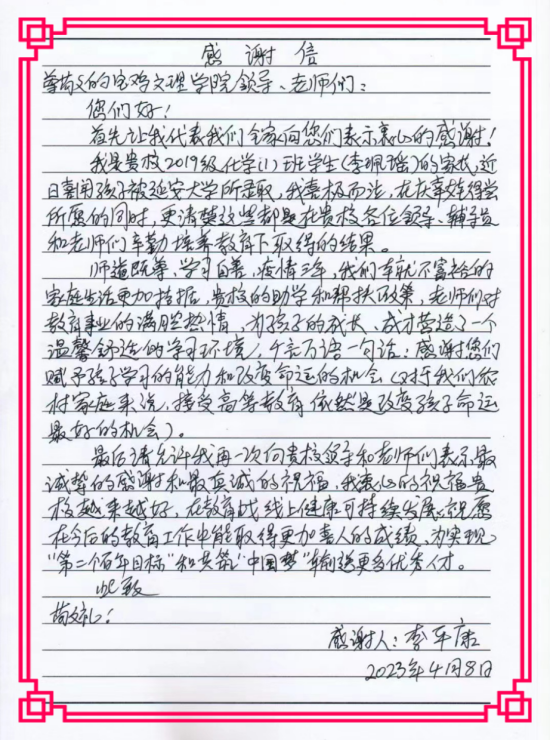 感谢信
尊敬的宝鸡文理学院领导、老师们：
您们好！
首先让我代表我们全家向您们表示衷心的感谢！
我是贵校2019级化学(1)班学生(李珮瑶)的家长,近
日喜闻孩子被延安大学所录取,我喜极而泣,在庆幸娃得尝
所愿的同时,更清楚这些都是在贵校各位领导、辅导员
和老师们辛勤培养教育下取得的结果。
师道既尊,学习自善,疫情三年,我们本就不富裕的
家庭生活更加拮据,贵校的助学和帮扶政策,老师们对
教育事业的满腔热情,为孩子的成长、成才营造了一个
温馨舒适的学习环境,千言万语一句话：感谢您们
赋予孩子学习的能力和改变命运的机会(对于我们农
村家庭来说,接受高等教育依然是改变孩子命运
最好的机会)。
最后请允许我再一次向贵校领导和老师们表示最
诚挚的感谢和最真诚的祝福,我衷心的祝福贵
校越来越好,在教育战线上健康可持续发展,祝愿
在今后的教育工作中能取得更加喜人的成绩,为实现
“第二个百年目标”和共筑“中国梦”输送更多优秀人才。
此致
敬礼！
感谢人：李平康
2023年4月8日